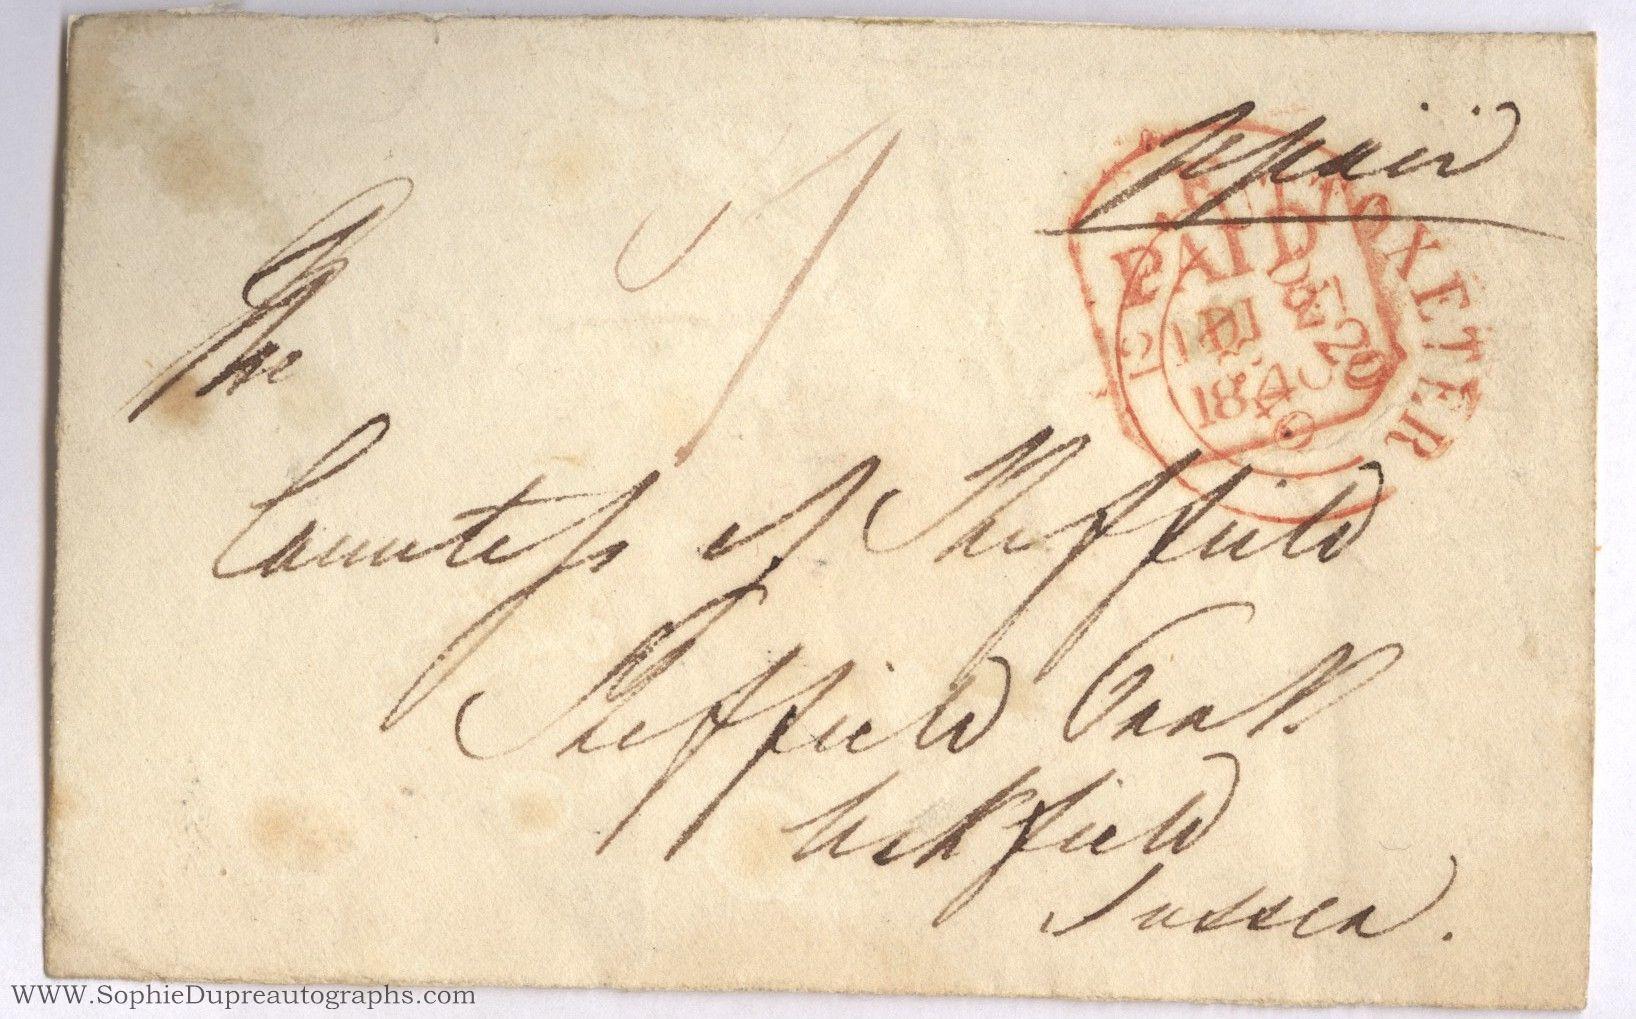 The
Countess of Sheffield
Sheffield Park.
Uckfield
Sussex.
PAID
UTTOXETER
DE 20
1840
WWW.SophieDupreautographs.com